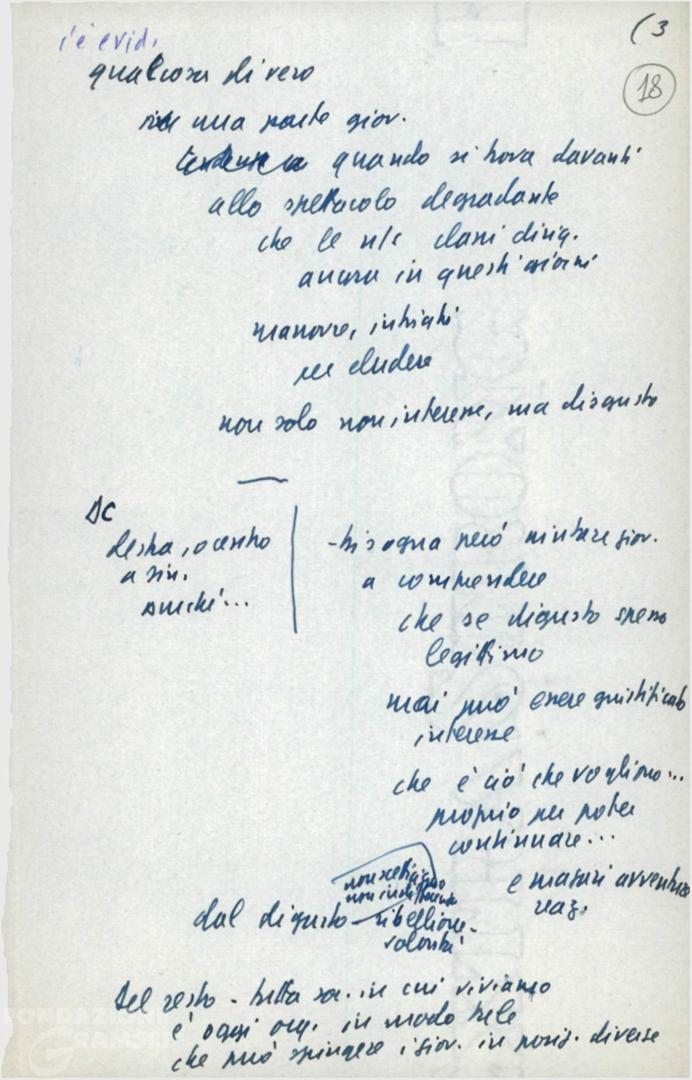 (3
18
c'è evid.
qualcosa di vero
in una parte giov.
quando si trova davanti
allo spettacolo degradante
che le n/s classi dirig.
ancora in questi giorni
manovre, intrighi
per eludere
non solo non interesse, ma disgusto
DC
destra, o centro
a sin.
purché...
- bisogna però aiutare giov.
a comprendere
che se disgusto spesso
legittimo
mai può essere giustificato
interesse
che è ciò che vogliono...
proprio per poter
continuare...
e magari avventure
reaz.
non scetticismo
non indifferenza
dal disgusto - ribellione -
volontà
Del resto - tutta soc. in cui viviamo
è oggi org. in modo tale
che può spingere i giov. in posiz. diverse
FONDAZIONE
GRAMSCI